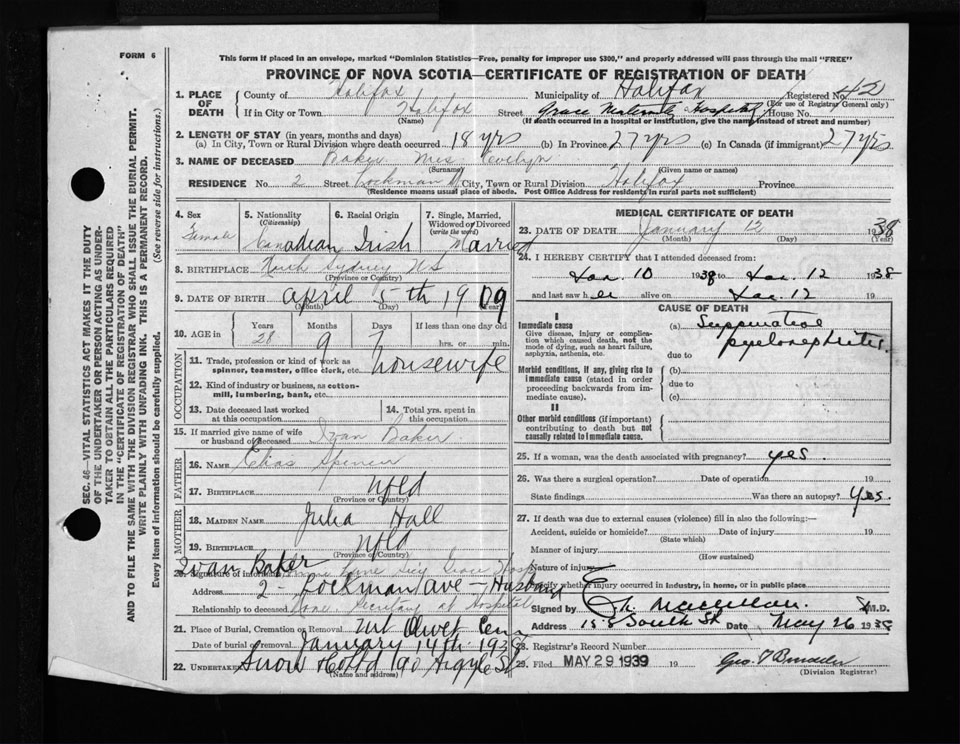 FORM 6
This form if placed in an envelope, marked "Dominion Statistics—Free, penalty for improper use $300," and properly addressed will pass through the mail "FREE"
PROVINCE OF NOVA SCOTIA—CERTIFICATE OF REGISTRATION OF DEATH
1. PLACE OF DEATH
County of Halifax Municipality of Halifax Registered No. 42
(For use of Registrar General only)
If in City or Town Halifax Street Grace Maternity Hospital House No.
(Name) (If death occurred in a hospital or institution, give the name instead of street and number)
2. LENGTH OF STAY (in years, months and days)
(a) In City, Town or Rural Division where death occurred 18 yrs (b) In Province 27 yrs (c) In Canada (if immigrant) 27 yrs
3. NAME OF DECEASED Baker Mrs Evelyn
(Surname) (Given name or names)
RESIDENCE No. 2 Street Lockman City, Town or Rural Division Halifax Province
(Residence means usual place of abode. Post Office Address for residents in rural parts not sufficient)
4. Sex Female
5. Nationality (Citizenship) Canadian
6. Racial Origin Irish
7. Single, Married, Widowed or Divorced (write the word) Married
8. BIRTHPLACE North Sydney NS
(Province or Country)
9. DATE OF BIRTH April 5th 1909
(Month) (Day) (Year)
10. AGE in Years 28 Months 9 Days 7 If less than one day old
hrs. or min.
OCCUPATION
11. Trade, profession or kind of work as spinner, teamster, office clerk, etc. housewife
12. Kind of industry or business, as cotton-mill, lumbering, bank, etc.
13. Date deceased last worked at this occupation
14. Total yrs. spent in this occupation
15. If married give name of wife or husband of deceased Ivan Baker
FATHER
16. Name Elias Spencer
17. Birthplace Nfld
(Province or Country)
MOTHER
18. Maiden Name Julia Hall
19. Birthplace Nfld
(Province or Country)
Ivan Baker
20. Signature of informant
Address 2 - Lockman ave - Husband
Relationship to deceased None. Secretary at Hospital
21. Place of Burial, Cremation or Removal Mt Olivet Cem
Date of burial or removal January 14th 1938
22. Undertaker Snow & Co Ltd 190 Argyle St
(Name and address)
MEDICAL CERTIFICATE OF DEATH
23. DATE OF DEATH January 12 1938
(Month) (Day) (Year)
24. I HEREBY CERTIFY that I attended deceased from:
Jan. 10 1938 to Jan. 12 1938
and last saw her alive on Jan. 12 19
CAUSE OF DEATH
I
Immediate cause
Give disease, injury or complication which caused death, not the mode of dying, such as heart failure, asphyxia, asthenia, etc.
(a) Suppurative pyelonephritis.
due to
Morbid conditions, if any, giving rise to immediate cause (stated in order proceeding backwards from immediate cause).
(b)
due to
(c)
II
Other morbid conditions (if important) contributing to death but not causally related to immediate cause.
25. If a woman, was the death associated with pregnancy? yes.
26. Was there a surgical operation? Date of operation 19
State findings Was there an autopsy? Yes.
27. If death was due to external causes (violence) fill in also the following:—
Accident, suicide or homicide? Date of injury 19
(State which)
Manner of injury
(How sustained)
Nature of injury
Specify whether injury occurred in industry, in home, or in public place
Signed by M.D.
Address 158 South St Date May 26 1938
28. Registrar's Record Number
29. Filed MAY 29 1939 19
(Division Registrar)
SEC. 46—VITAL STATISTICS ACT MAKES IT THE DUTY
OF THE UNDERTAKER OR PERSON ACTING AS UNDERTAKER TO OBTAIN ALL THE PARTICULARS REQUIRED
IN THE "CERTIFICATE OF REGISTRATION OF DEATH"
AND TO FILE THE SAME WITH THE DIVISION REGISTRAR WHO SHALL ISSUE THE BURIAL PERMIT.
WRITE PLAINLY WITH UNFADING INK. THIS IS A PERMANENT RECORD.
Every item of information should be carefully supplied. (See reverse side for instructions.)